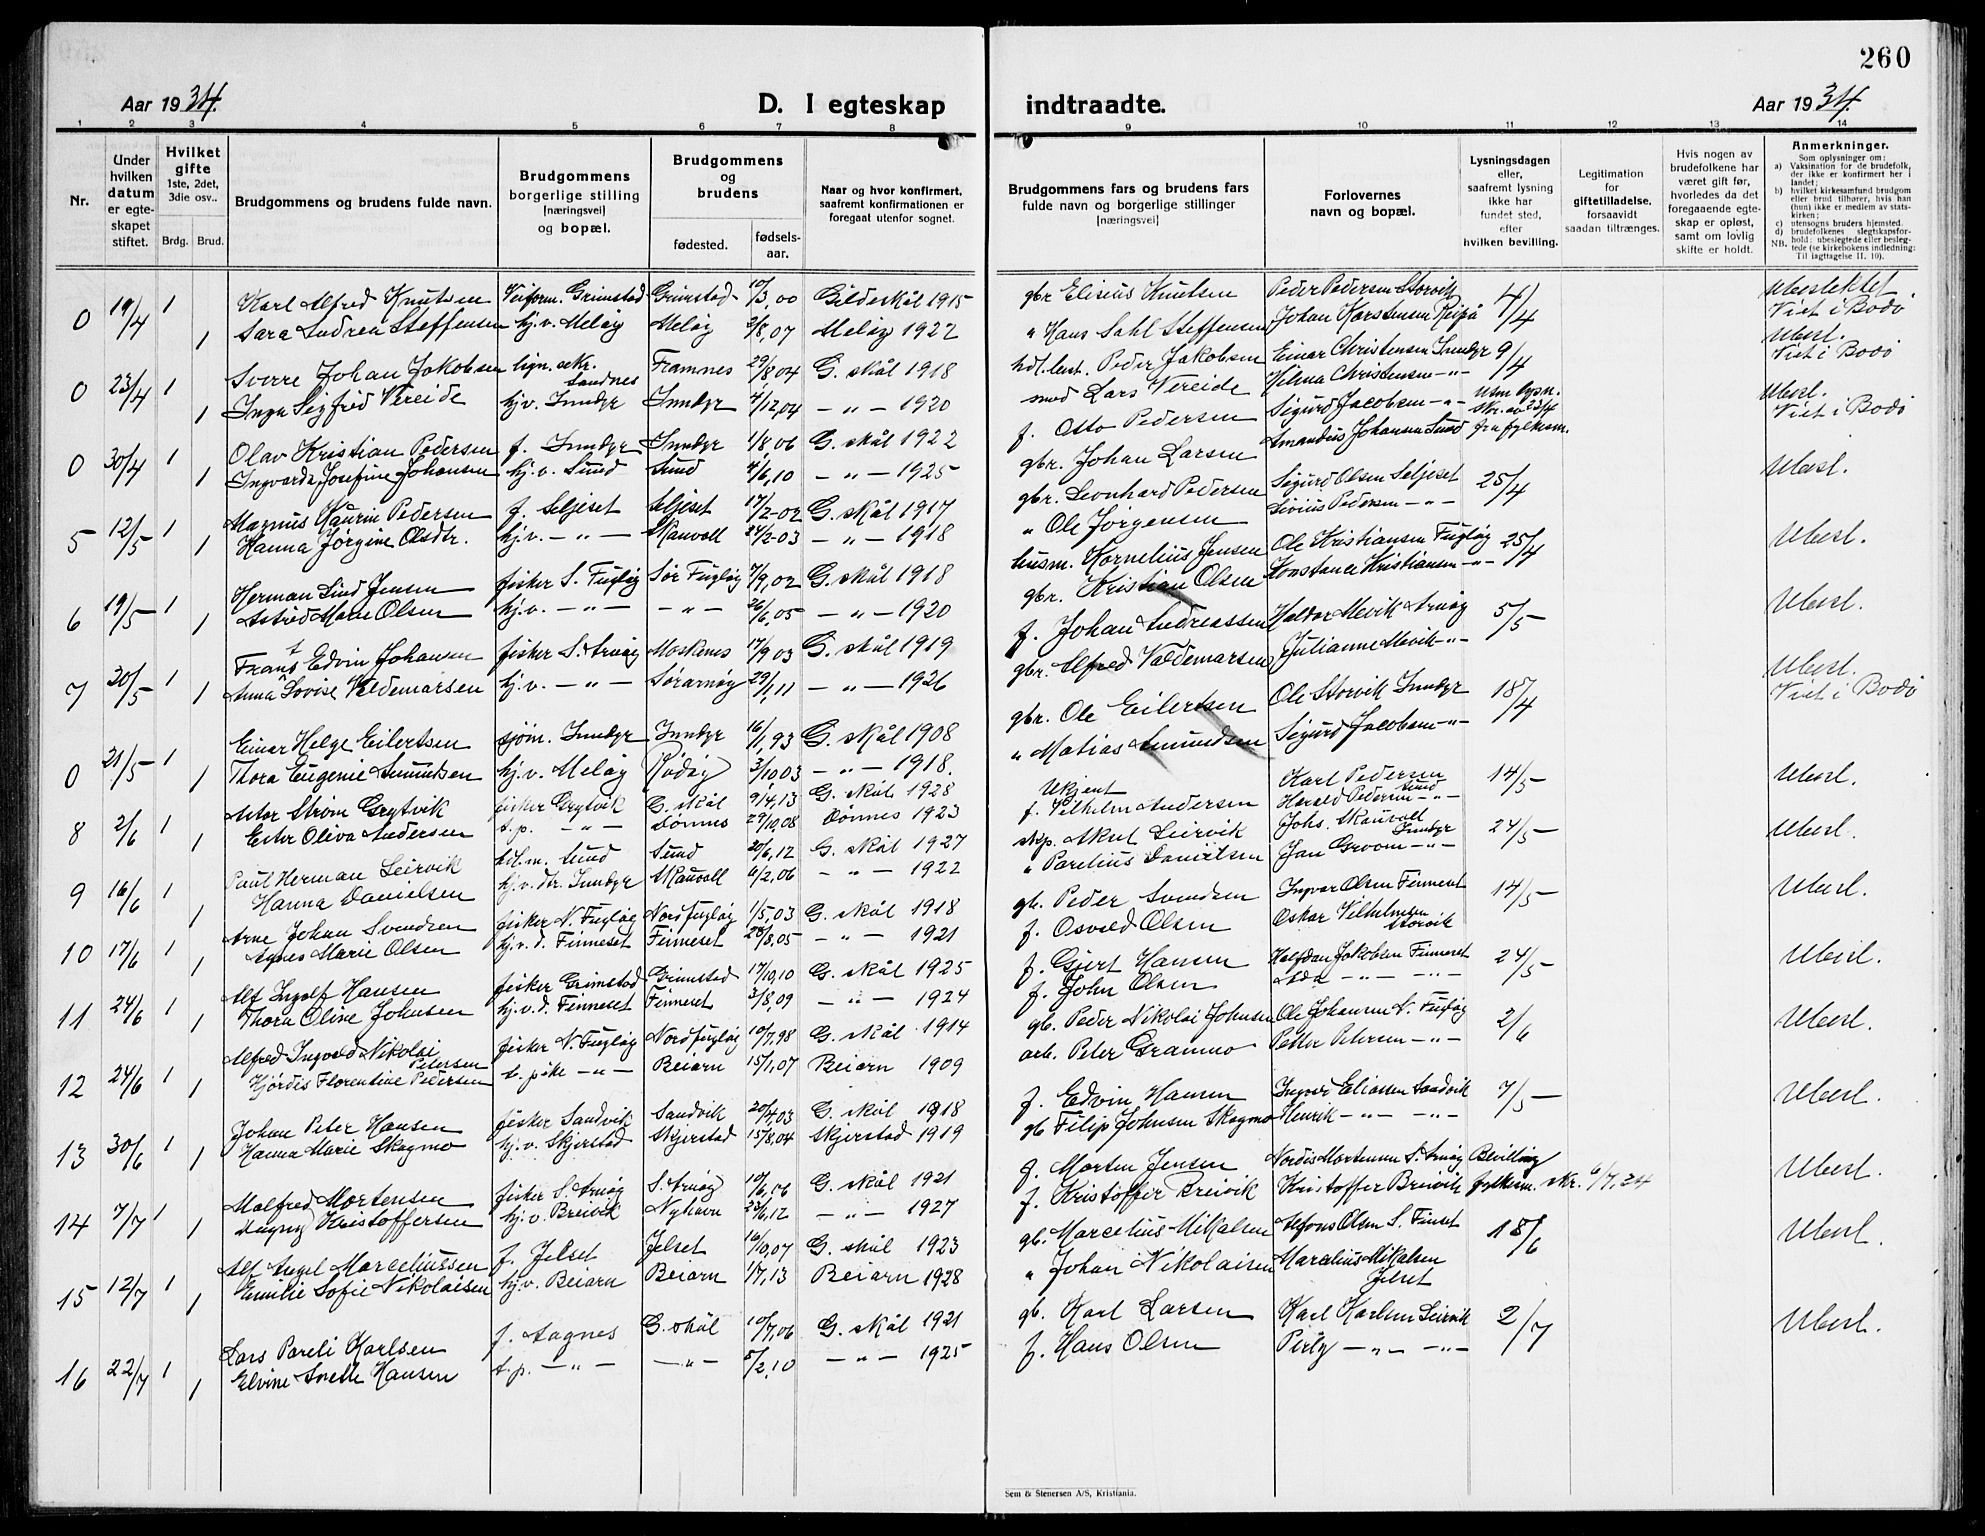 260
Aar 1934.
D. I egteskap indtraadte.
Aar 1934.
1 2 3 4 5 6 7 8 9 10 11 12 13 14
Nr.
Under hvilken datum er egteskapet stiftet.
Hvilket gifte 1ste, 2det, 3die osv..
Brdg. Brud.
Brudgommens og brudens fulde navn.
Brudgommens borgerlige stilling [næringsvei] og bopæl.
Brudgommens og brudens
fødested. fødselsaar.
Naar og hvor konfirmert, saafremt konfirmationen er foregaat utenfor sognet.
Brudgommens fars og brudens fars fulde navn og borgerlige stillinger [næringsvei]
Forlovernes navn og bopæl.
Lysningsdagen eller, saafremt lysning ikke har fundet sted, efter hvilken bevilling.
Legitimation for giftetilladelse, forsaavidt saadan tiltrænges.
Hvis nogen av brudefolkene har været gift før, hvorledes da det foregaaende egteskap er opløst, samt om lovlig skifte er holdt.
Anmerkninger.
Som oplysninger om:
a) Vaksination for de brudefolk, der ikke er konfirmert her i landet;
b) hvilket kirkesamfund brudgom eller brud tilhører, hvis han (hun) ikke er medlem av statskirken;
c) utensogns bruders hjemsted.
d) brudefolkenes slegtskapsforhold: ubeslegtede eller beslegtede (se kirkebokens indledning: Til iagttagelse II. 10).
NB.
0 19/4 1 Karl Alfred Knutsen Veiform. Grimstad Grimstad 10/3,00 Gildeskål 1915 gbr Elisius Knutsen Peder Pedersen Storvik 4/4 Ubeslektet
1 Sara Andrea Steffensen hj.v. Meløy Meløy 2/8,07 Meløy 1922 " Hans Dahl Steffensen Johan Karstensen Reipå Viet i Bodø
0 23/4 1 Sverre Johan Jakobsen lign. sekr. Sandnes Framnes 29/8 04 G. skål 1918 Peder Jakobsen Einar Christensen Inndyr 9/4 Ubesl.
1 Inga Sigfrid Vereide hj.v. Inndyr Inndyr 4/12,04 – " – 1920 smed Lars Vereide Hilma Christensen – " – Viet i Bodø
0 30/4 1 Olav Kristian Pedersen f. Inndyr Inndyr 1/8,06 G. skål 1922 f. Otto Pedersen Sigurd Jacobsen – " – Utm lysn. Ubesl.
1 Ingvarda Josefine Johansen hj.v. Sund Sund 4/6,10 – " – 1925 gbr. Johan Larsen Amandus Johansen Sund Skr. av 23/4 fra fylkesm. Viet i Bodø
5 12/5 1 Magnus Haurin Pedersen f. Seljeset Seljeset 17/2-02 G. skål 1917 gbr. Leonhard Pedersen Sigurd Olsen Seljeset 25/4 Ubesl.
1 Hanna Jørgine Olsdtr. hj.v. – " – Skauvoll 24/2-03 – " – 1918 " Ole Jørgensen Sivius Pedersen – " –
6 19/5 1 Herman Lind Jensen fisker S. Fugløy Sør Fugløy 7/9,02 G. skål 1918 husm. Kornelius Jensen Ole Kristiansen Fugløy 25/4 Ubesl.
1 Astrid Marie Olsen hj.v. – " – – " – 26/6,05 – " – 1920 gbr. Kristian Olsen Konstance Kristiansen – " –
7 20/5 1 Frants Edvin Johansen fisker S. Arnøy Moskenes 17/9 03 G. skål 1919 f. Johan Andreassen Haldor Mevik Arnøy 5/5 Ubesl.
1 Anna Lovise Valdemarsen hj.v. – " – Sørarnøy 29/1,11 – " – 1926 gbr. Alfred Valdemarsen Julianne Mevik – " –
0 21/5 1 Einar Helge Eilertsen sjøm. Inndyr Inndyr 16/11,93 G. skål 1908 gbr. Ole Eilertsen Ole Storvik Inndyr 18/4 Ubesl.
1 Thora Eugenie Amundsen hj.v. Meløy (Rødøy) 3/10 03 – " – 1918. " Matias Amundsen Sigurd Jacobsen – " – Viet i Bodø
8 2/6 1 Astor Strøm Grytvik fisker Grytvik G. skål 9/4,13 G. skål 1928 Ukjent Karl Pedersen Sund 14/5 Ubesl.
1 Ester Oliva Andersen t.p. – " – Dønnes 29/10,08 Dønnes 1923 f. Vilhelm Andersen Harald Pedersen – " –
9 16/6 1 Paul Herman Leirvik Sund Sund 20/6,12 G. skål 1927 skp. Aksel Leirvik Johs. Skauvoll Inndyr 24/5 Ubesl.
1 Hanna Danielsen hj.v. dtr. Inndyr Skauvoll 6/2,06 – " – 1922 " Parelius Danielsen Jan Groom – " –
10 17/6 1 Arne Johan Svendsen fisker N. Fugløy Nordfugløy 1/5,03 G. skål 1918 gb. Peder Svendsen Ingvar Olsen Finneset 14/5 Ubesl.
1 Agnes Marie Olsen hj.v.d. Finneset Finneset 28/8,05 – " – 1921 f. Osvald Olsen Oskar Vilhelmsen Storvik
11 24/6 1 Alf Ingolf Hansen fisker Grimstad Grimstad 17/10,10 G. skål 1925 f. Gjert Hansen Halfdan Jakobsen Finneset 24/5 Ubesl.
1 Thora Oline Johnsen hj.v.d. Finneset Finneset 3/8,09 – " – 1924 f. John Olsen Alda – " – – " –
12 24/6 1 Alfred Ingvald Nikolai Petersen fisker N. Fugløy Nordfugløy 10/7,98 G. skål 1914 gb. Peder Nikolai Johnsen Ole Johansen N. Fugløy 2/6 Ubesl.
1 Hjørdis Florentine Pedersen t. pike – " – Beiarn 15/1,07 Beiarn 1909 arb. Peter Gramno Petter Petersen – " –
13 30/6 1 Johan Peter Hansen fisker Sandvik Sandvik 20/4,03 G. skål 1918 f. Edvin Hansen Ingvald Eliassen Sandvik 7/5 Ubesl.
1 Hanna Marie Skogmo hj.v. Skjerstad Skjerstad 15/8,04 Skjerstad 1919 gb Filip Johnsen Skogmo Henrik – " – – " –
14 7/7 1 Malfred Mortensen fisker S. Arnøy S. Arnøy 10/6,06 G. skål 1921 g. Morten Jensen Nordis Mortensen S. Arnøy Bevilling Ubesl.
1 Magny Kristoffersen hj.v. Breivik Nyhavn 23/6,12 – " – 1927 f. Kristoffer Breivik Kristoffer Breivik fylkesm. skr. 6/7,34
15 12/7 1 Alf Angel Marceliussen f. Jelset Jelset 16/10,07 G. skål 1923 gb. Marcelius Mikalsen Alfons Olsen S. Finset 18/6 Ubesl.
1 Emilie Sofie Nikolaisen hj.v. Beiarn Beiarn 1/7,13 Beiarn 1928 " Johan Nikolaisen Marcelius Mikalsen Jelset
16 22/7 1 Lars Pareli Karlsen f. Aagnes G. skål 10/7,06 G. skål 1921 gb. Karl Larsen Karl Karlsen Leirvik 2/7 Ubesl.
1 Elvine Anette Hansen t.p. – " – – " – 5/2,10 – " – 1925 f. Hans Olsen – " – – " –
Sem & Stenersen A/S, Kristiania.